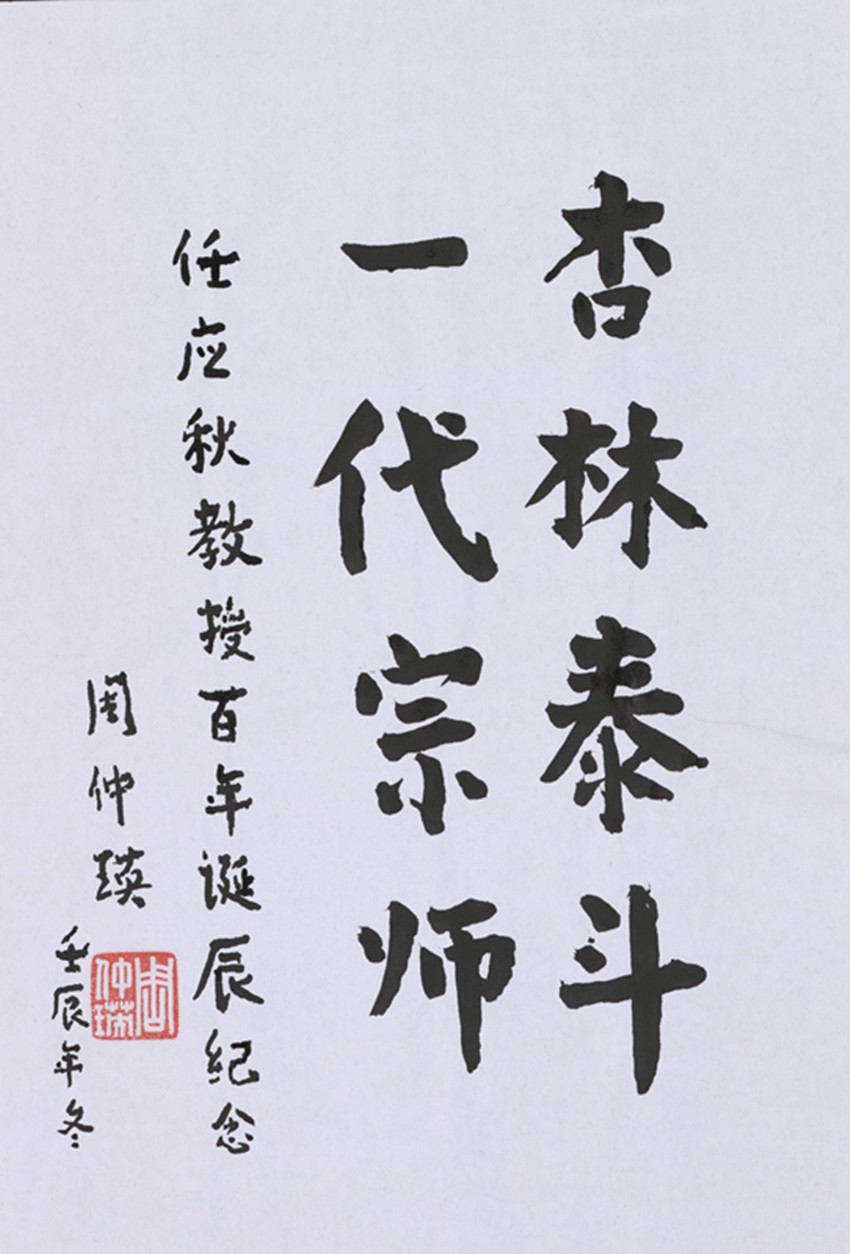 杏林泰斗
一代宗师
任应秋教授百年诞辰纪念
周仲瑛
壬辰年冬
周仲瑛